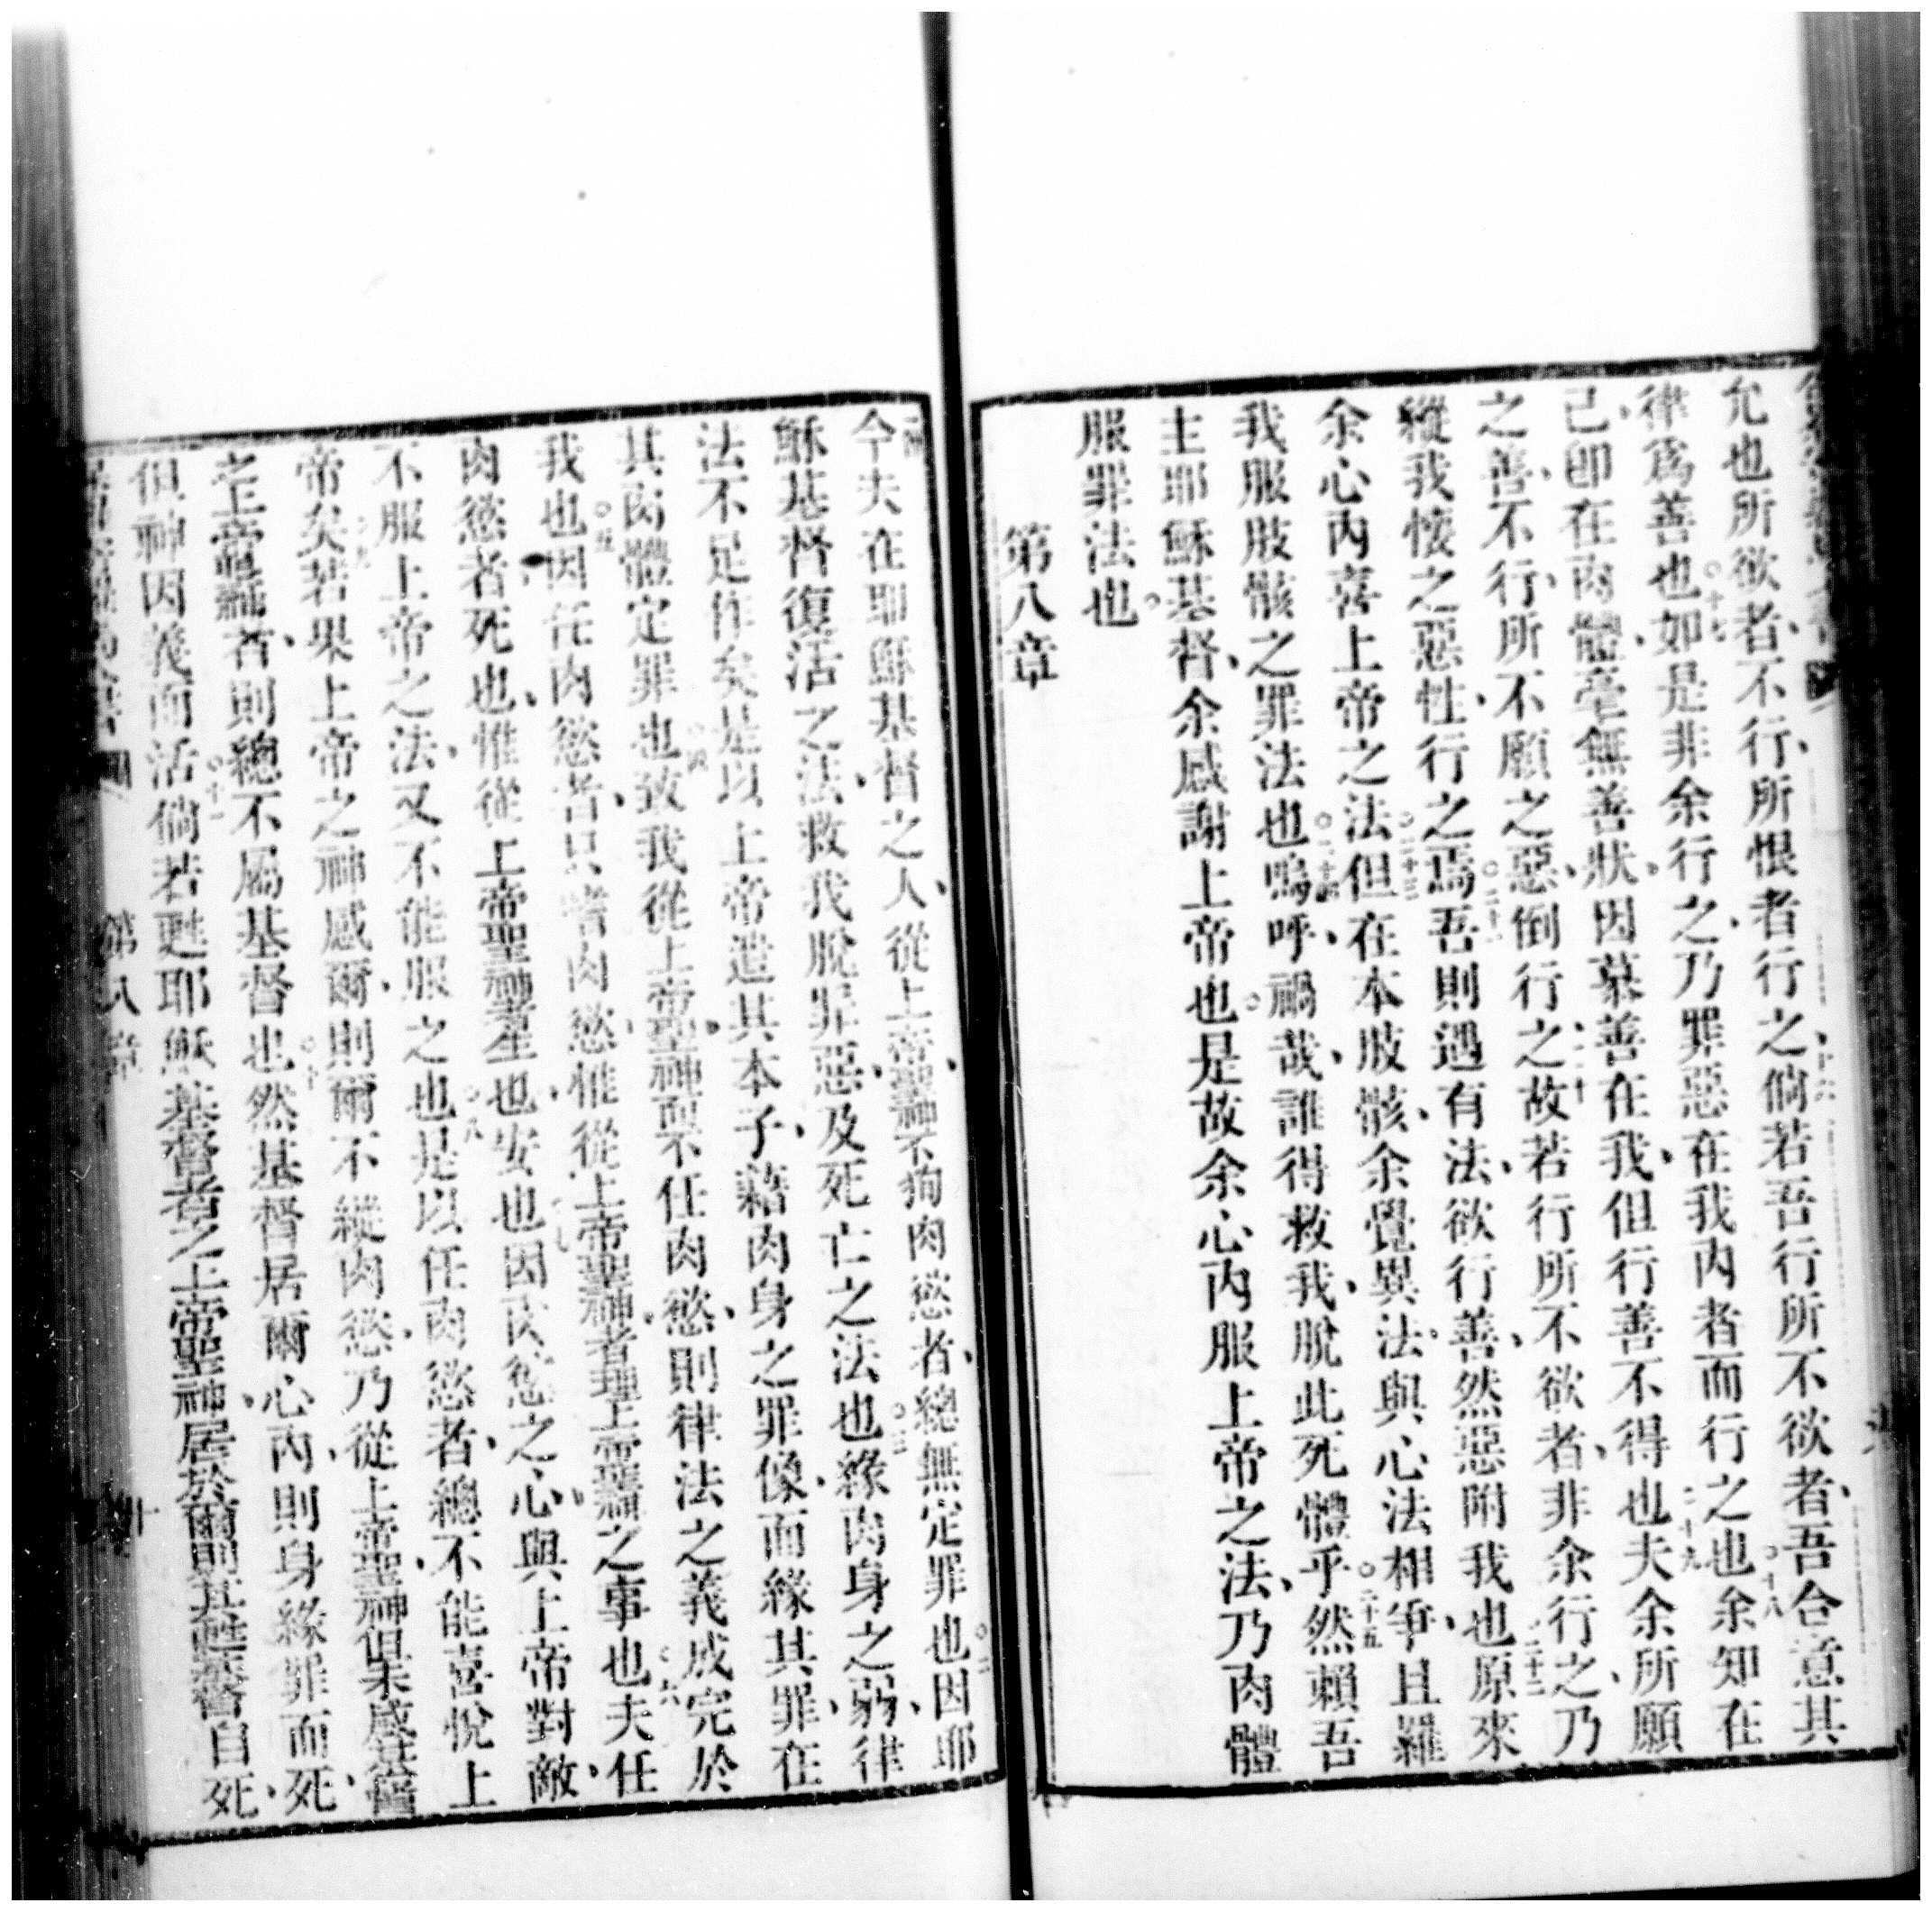 允也所欲者不行所恨者行之十六倘若吾行所不欲者吾合意其
律爲善也十七如是非余行之乃罪惡在我內者而行之也十八余知在
己卽在肉體毫無善狀因慕善在我但行善不得也十九夫余所願
之善不行所不願之惡倒行之二十故若行所不欲者非余行之乃
縱我懷之惡性行之焉二十一吾則遇有法欲行善然惡附我也二十二原來
余心內喜上帝之法二十三但在本肢骸余覺異法與心法相爭且羅
我服肢骸之罪法也二十四嗚呼禍哉誰得救我脫此死體乎二十五然賴吾
主耶穌基督余感謝上帝也是故余心內服上帝之法乃肉體
服罪法也
第八章
今夫在耶穌基督之人從上帝聖神不狥肉慾者總無定罪也二因耶
穌基督復活之法救我脫罪惡及死亡之法也三緣肉身之弱律
法不足作矣是以上帝遣其本子藉肉身之罪像而緣其罪在
其肉體定罪也四致我從上帝聖神而不任肉慾則律法之義成完於
我也五因任肉慾者只嗜肉慾惟從上帝聖神者理上帝聖神之事也六夫任
肉慾者死也惟從上帝聖神者生也安也七因肉慾之心與上帝對敵
不服上帝之法又不能服之也八是以任肉慾者總不能喜悅上
帝矣九若果上帝之神感爾則爾不縱肉慾乃從上帝聖神但未感基督
之上帝聖神者則總不屬基督也十然基督居爾心內則身緣罪而死
但神因義而活十一倘若甦耶穌基督者之上帝聖神居於爾則其甦基督自死
第八章
十